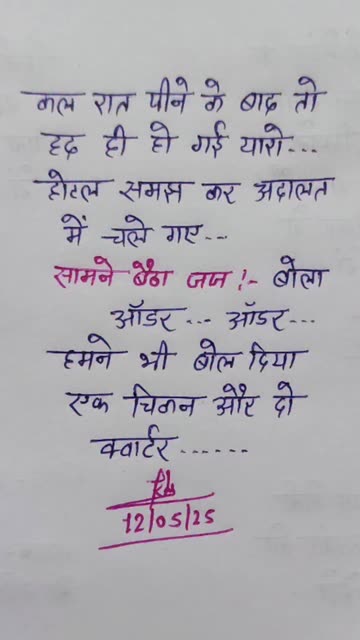 कल रात पीने के बाद तो
हद ही हो गई यारो...
होटल समझ कर अदालत
में चले गए...
सामने बैठा जज !- बोला
ऑडर ... ऑडर...
हमने भी बोल दिया
एक चिकन और दो
क्वार्टर ......
12/05/25